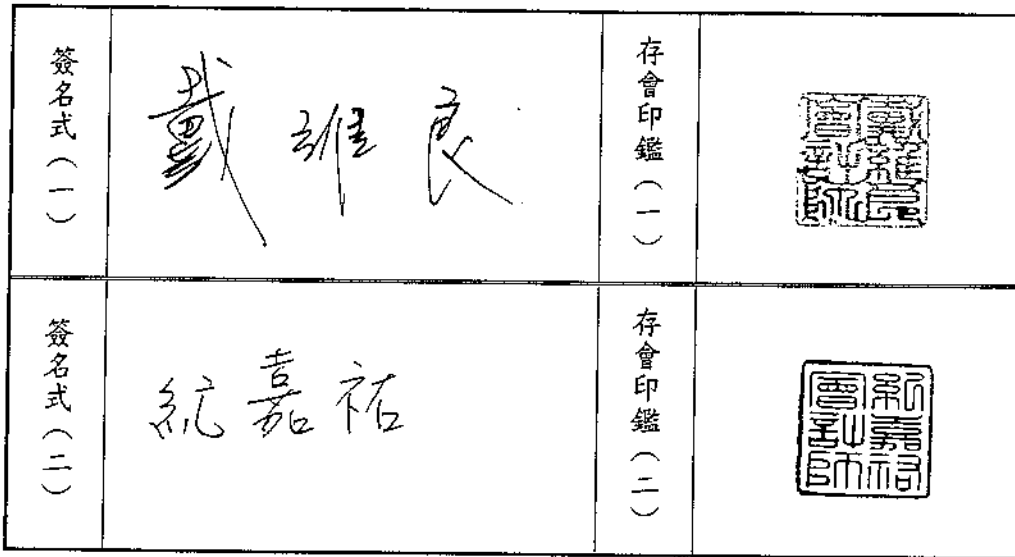 簽名式（一）
戴維良
存會印鑑（一）
戴維良會計師
簽名式（二）
紀嘉祐
存會印鑑（二）
紀嘉祐會計師